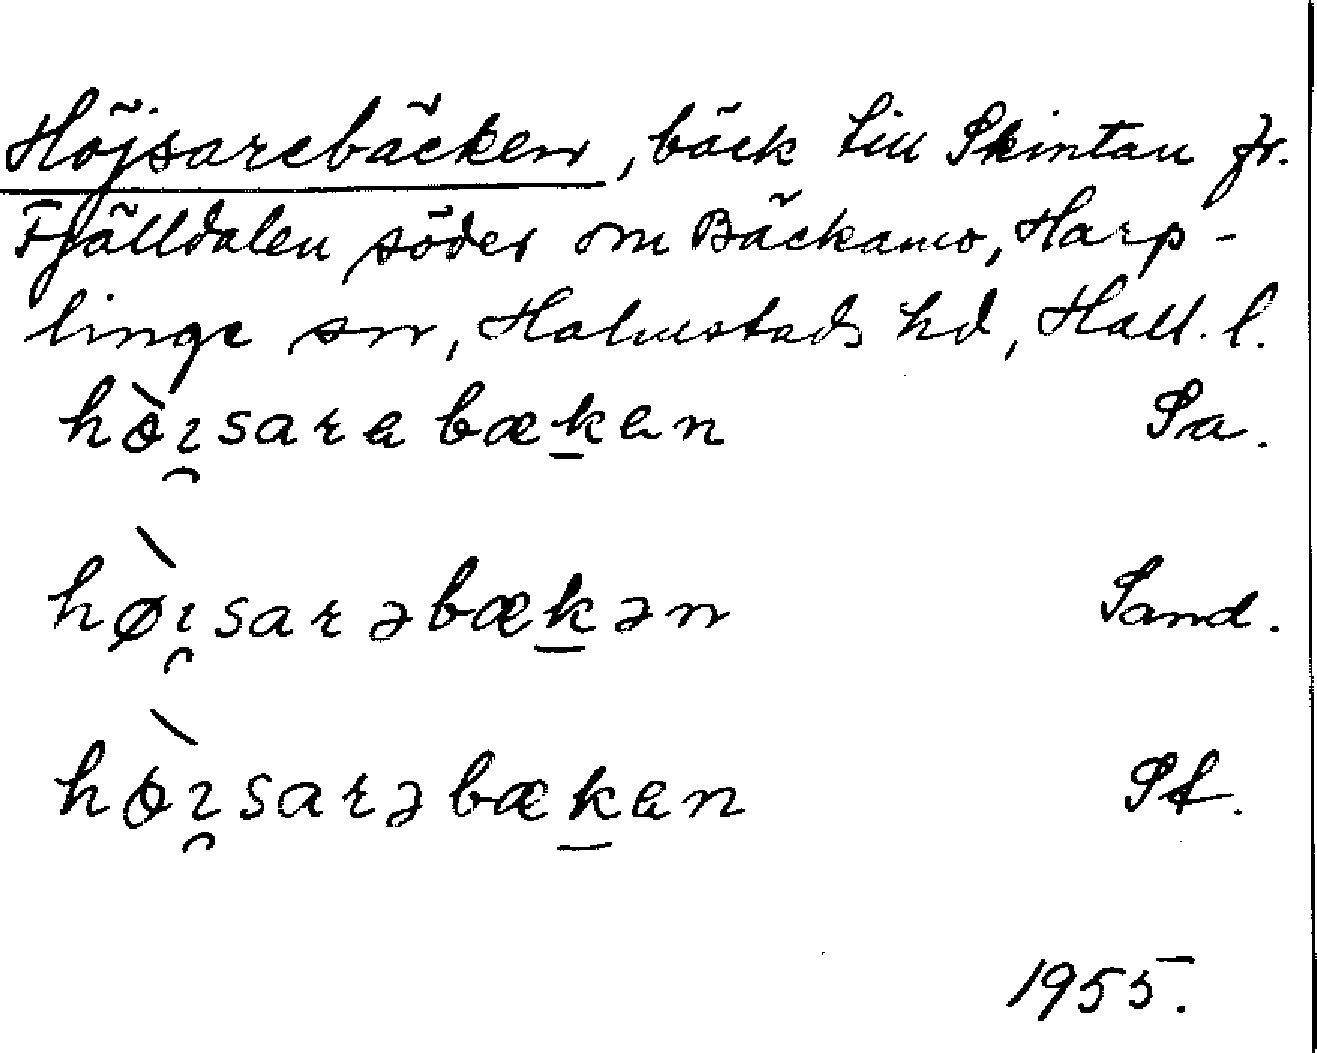 Höjsarebäcken, bäck till Skintan fr.
Fjälldalen söder om Bäckamo, Harp-
linge sn, Halmstads hd, Hall. l.
hò̵ı̯sarabækan Sa.
hø̀ı̯sarəbækən Sand.
hò̵ı̯sarəbækan St.
1955.